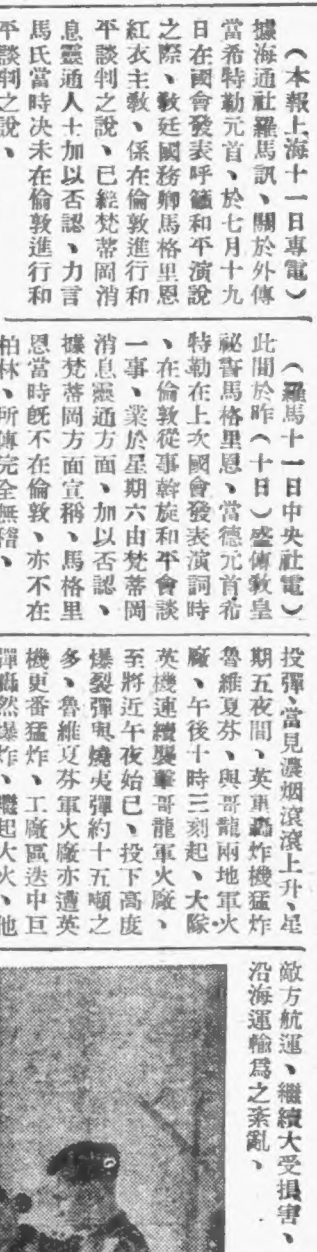 （本報上海十一日專電）
據海通社羅馬訊、關於外傳
當希特勒元首、於七月十九
日在國會發表呼籲和平演說
之際、敎廷國務卿馬格里恩
紅衣主敎、係在倫敦進行和
平談判之說、已經梵蒂岡消
息靈通人士加以否認、力言
馬氏當時決未在倫敦進行和
平談判之說、
（羅馬十一日中央社電）
此間於昨（十日）盛傳敎皇
祕書馬格里恩、當德元首希
特勒在上次國會發表演詞時
、在倫敦從事斡旋和平會談
一事、業於星期六由梵蒂岡
消息靈通方面、加以否認、
據梵蒂岡方面宣稱、馬格里
恩當時旣不在倫敦、亦不在
柏林、所傳完全無稽、
投彈、當見濃烟滾滾上升、星
期五夜間、英重轟炸機猛炸
魯維夏芬、與哥龍兩地軍火
廠、午後十時三刻起、大隊
英機連續襲擊哥龍軍火廠、
至將近午夜始已、投下高度
爆裂彈與燒夷彈約十五噸之
多、魯維夏芬軍火廠亦遭英
機更番猛炸、工廠區迭中巨
彈轟然爆炸、繼起大火、他
敵方航運、繼續大受損害、
沿海運輸爲之紊亂、